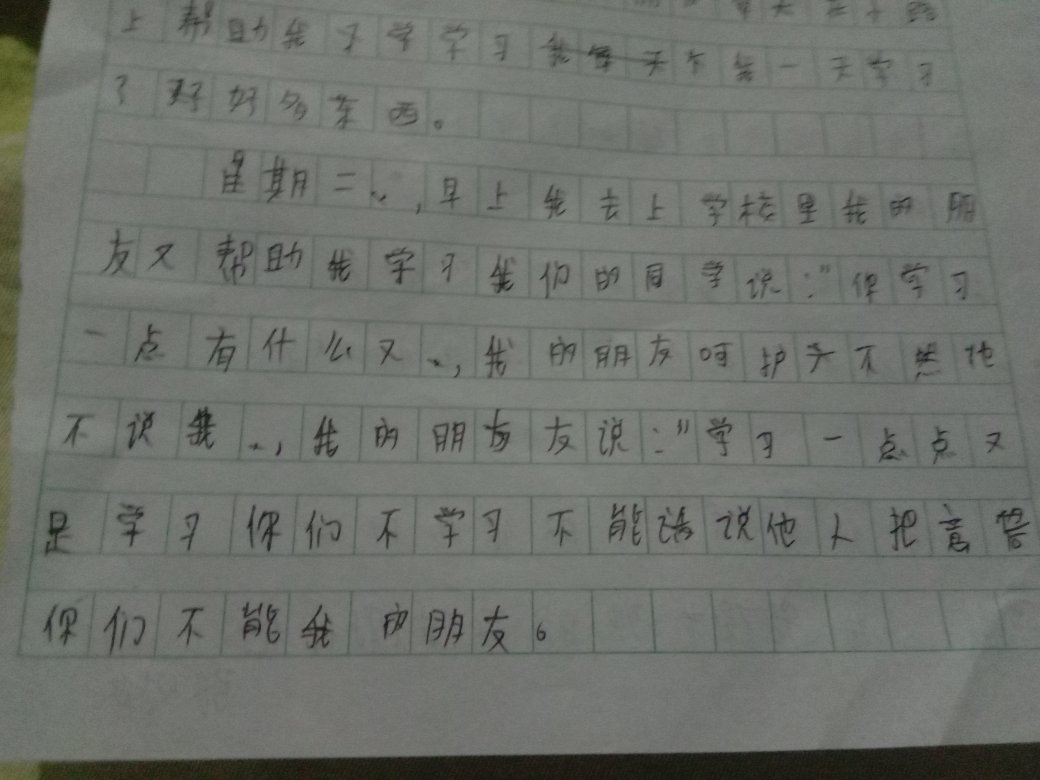 上帮助我了学学习我每天不每一天学习
了好好多东西。
星期二..,早上我去上学校里我的朋
友又帮助我学习我们的同学说:"你学习
一点有什么又..,我的朋友呵护不然他
不说我..,我的朋友友说:"学习一点点又
是学习你们不学习不能话说他人把意管
你们不能我的朋友。